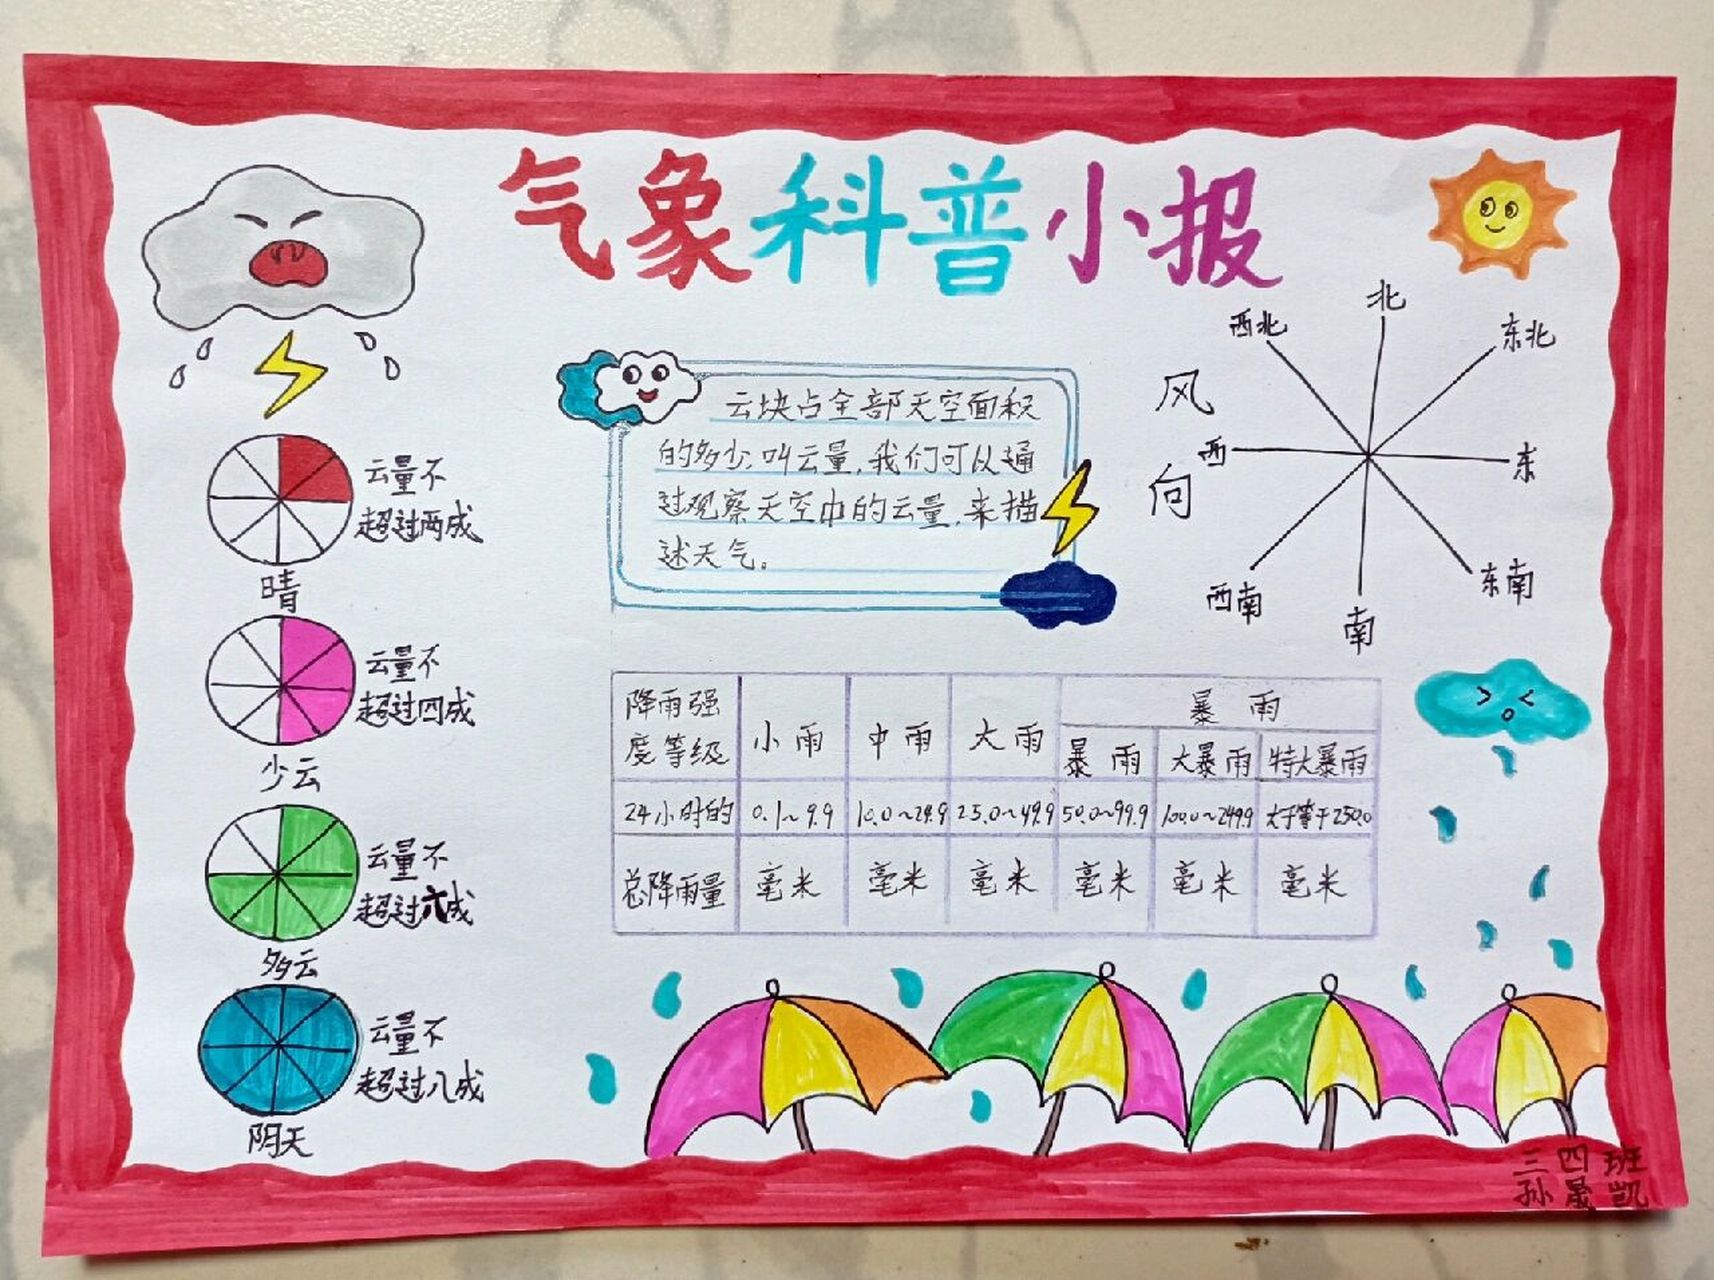 气象科普小报
云量不
超过两成
晴
云量不
超过四成
少云
云量不
超过六成
多云
云量不
超过八成
阴天
云块占全部天空面积
的多少,叫云量,我们可以通
过观察天空中的云量,来描
述天气。
风
向
北
东北
东
东南
南
西南
西
西北
降雨强
度等级
小雨
中雨
大雨
暴雨
暴雨
大暴雨
特大暴雨
24小时的
总降雨量
0.1~9.9
毫米
10.0~24.9
毫米
25.0~49.9
毫米
50.0~99.9
毫米
100.0~249.9
毫米
大于等于250.0
毫米
三四班
孙晟凯